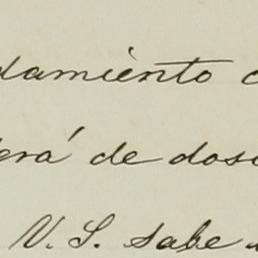 damiento c
erá de dos
V. S. sabe